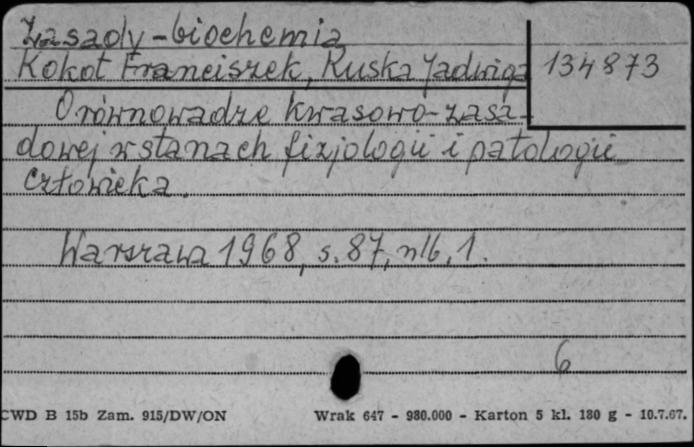 Zasady-biochemia
Kokot Franciszek, Ruska Jadwiga
134873
O równowadze kwasowo-zasa-
dowej w stanach fizjologii i patologii
człowieka.
Warszawa 1968, s. 87, nlb, 1.
6
CWD B 15b Zam. 915/DW/ON Wrak 647 - 980.000 - Karton 5 kl. 180 g - 10.7.67.